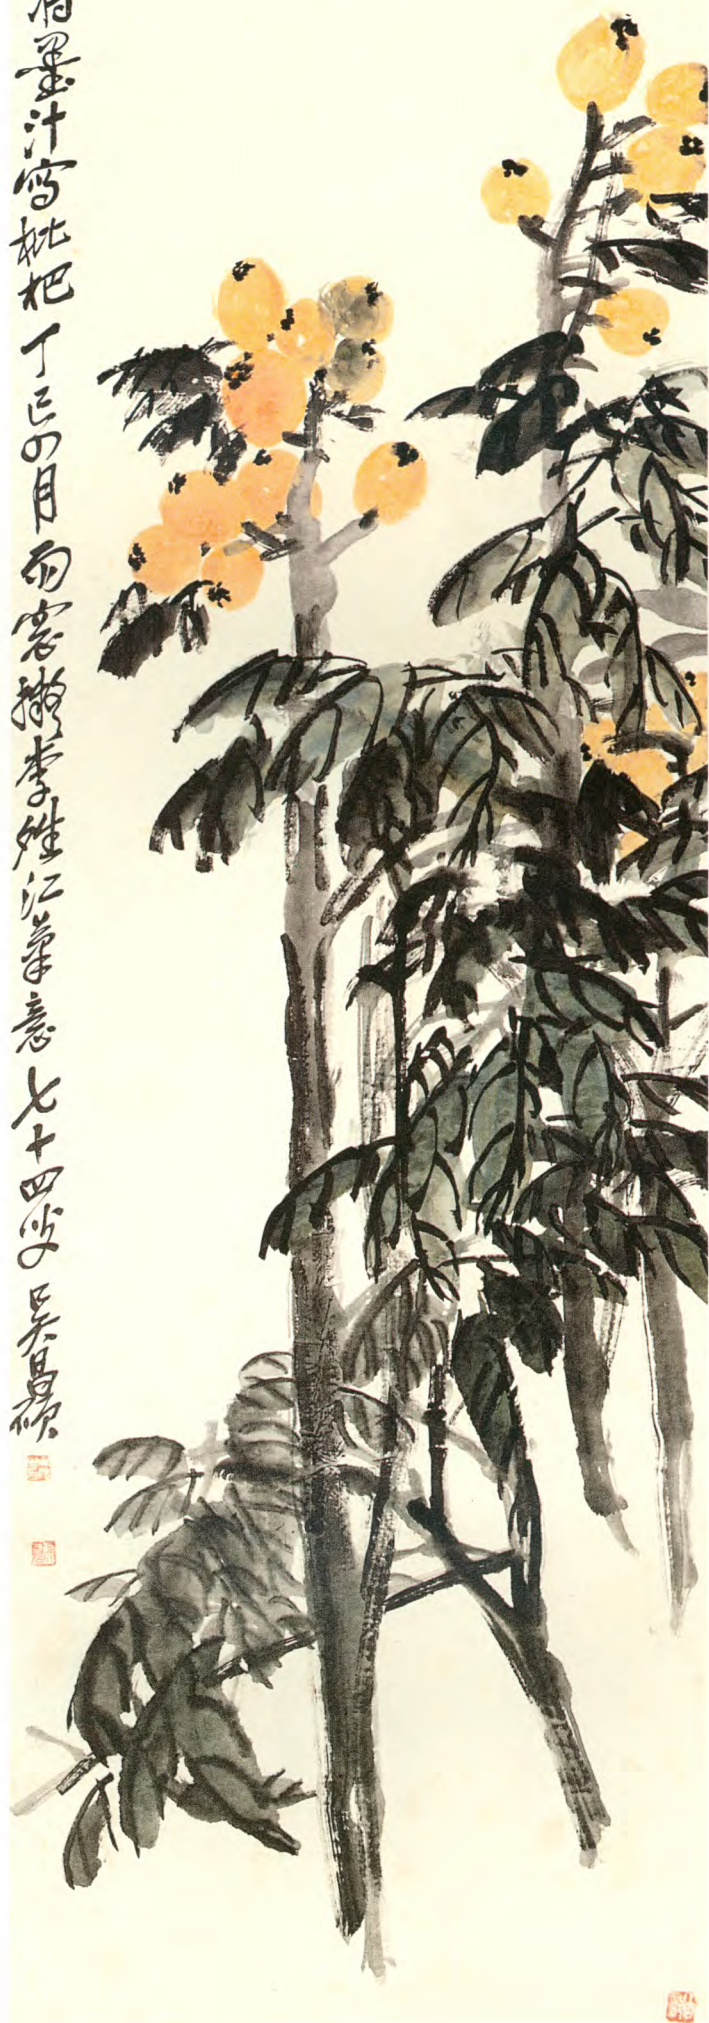 墨汁寫枇杷丁巳四月雨窓擬李夝江筆意七十四叟吳昌碩